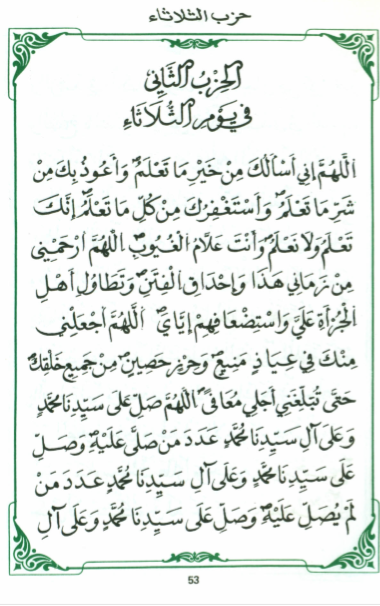 حزب الثلاثاء
الْحِزْبُ الثَّانِي
فِي يَوْمِ الثُّلَاثَاءِ
اَللَّهُمَّ إِنِّي أَسْأَلُكَ مِنْ خَيْرِ مَا تَعْلَمُ وَأَعُوذُ بِكَ مِنْ
شَرِّ مَا تَعْلَمُ وَأَسْتَغْفِرُكَ مِنْ كُلِّ مَا تَعْلَمُ إِنَّكَ
تَعْلَمُ وَلَا نَعْلَمُ وَأَنْتَ عَلَّامُ الْغُيُوبِ اللَّهُمَّ ارْحَمْنِي
مِنْ زَمَانِي هَذَا وَإِحْدَاقِ الْفِتَنِ وَتَطَاوُلِ أَهْلِ
الْجُرْأَةِ عَلَيَّ وَاسْتِضْعَافِهِمْ إِيَّايَ اللَّهُمَّ اجْعَلْنِي
مِنْكَ فِي عِيَاذٍ مَنِيعٍ وَحِرْزٍ حَصِينٍ مِنْ جَمِيعِ خَلْقِكَ
حَتَّى تُبَلِّغَنِي أَجَلِي مُعَافًى اللَّهُمَّ صَلِّ عَلَى سَيِّدِنَا مُحَمَّدٍ
وَعَلَى آلِ سَيِّدِنَا مُحَمَّدٍ عَدَدَ مَنْ صَلَّى عَلَيْهِ وَصَلِّ
عَلَى سَيِّدِنَا مُحَمَّدٍ وَعَلَى آلِ سَيِّدِنَا مُحَمَّدٍ عَدَدَ مَنْ
لَمْ يُصَلِّ عَلَيْهِ وَصَلِّ عَلَى سَيِّدِنَا مُحَمَّدٍ وَعَلَى آلِ
53